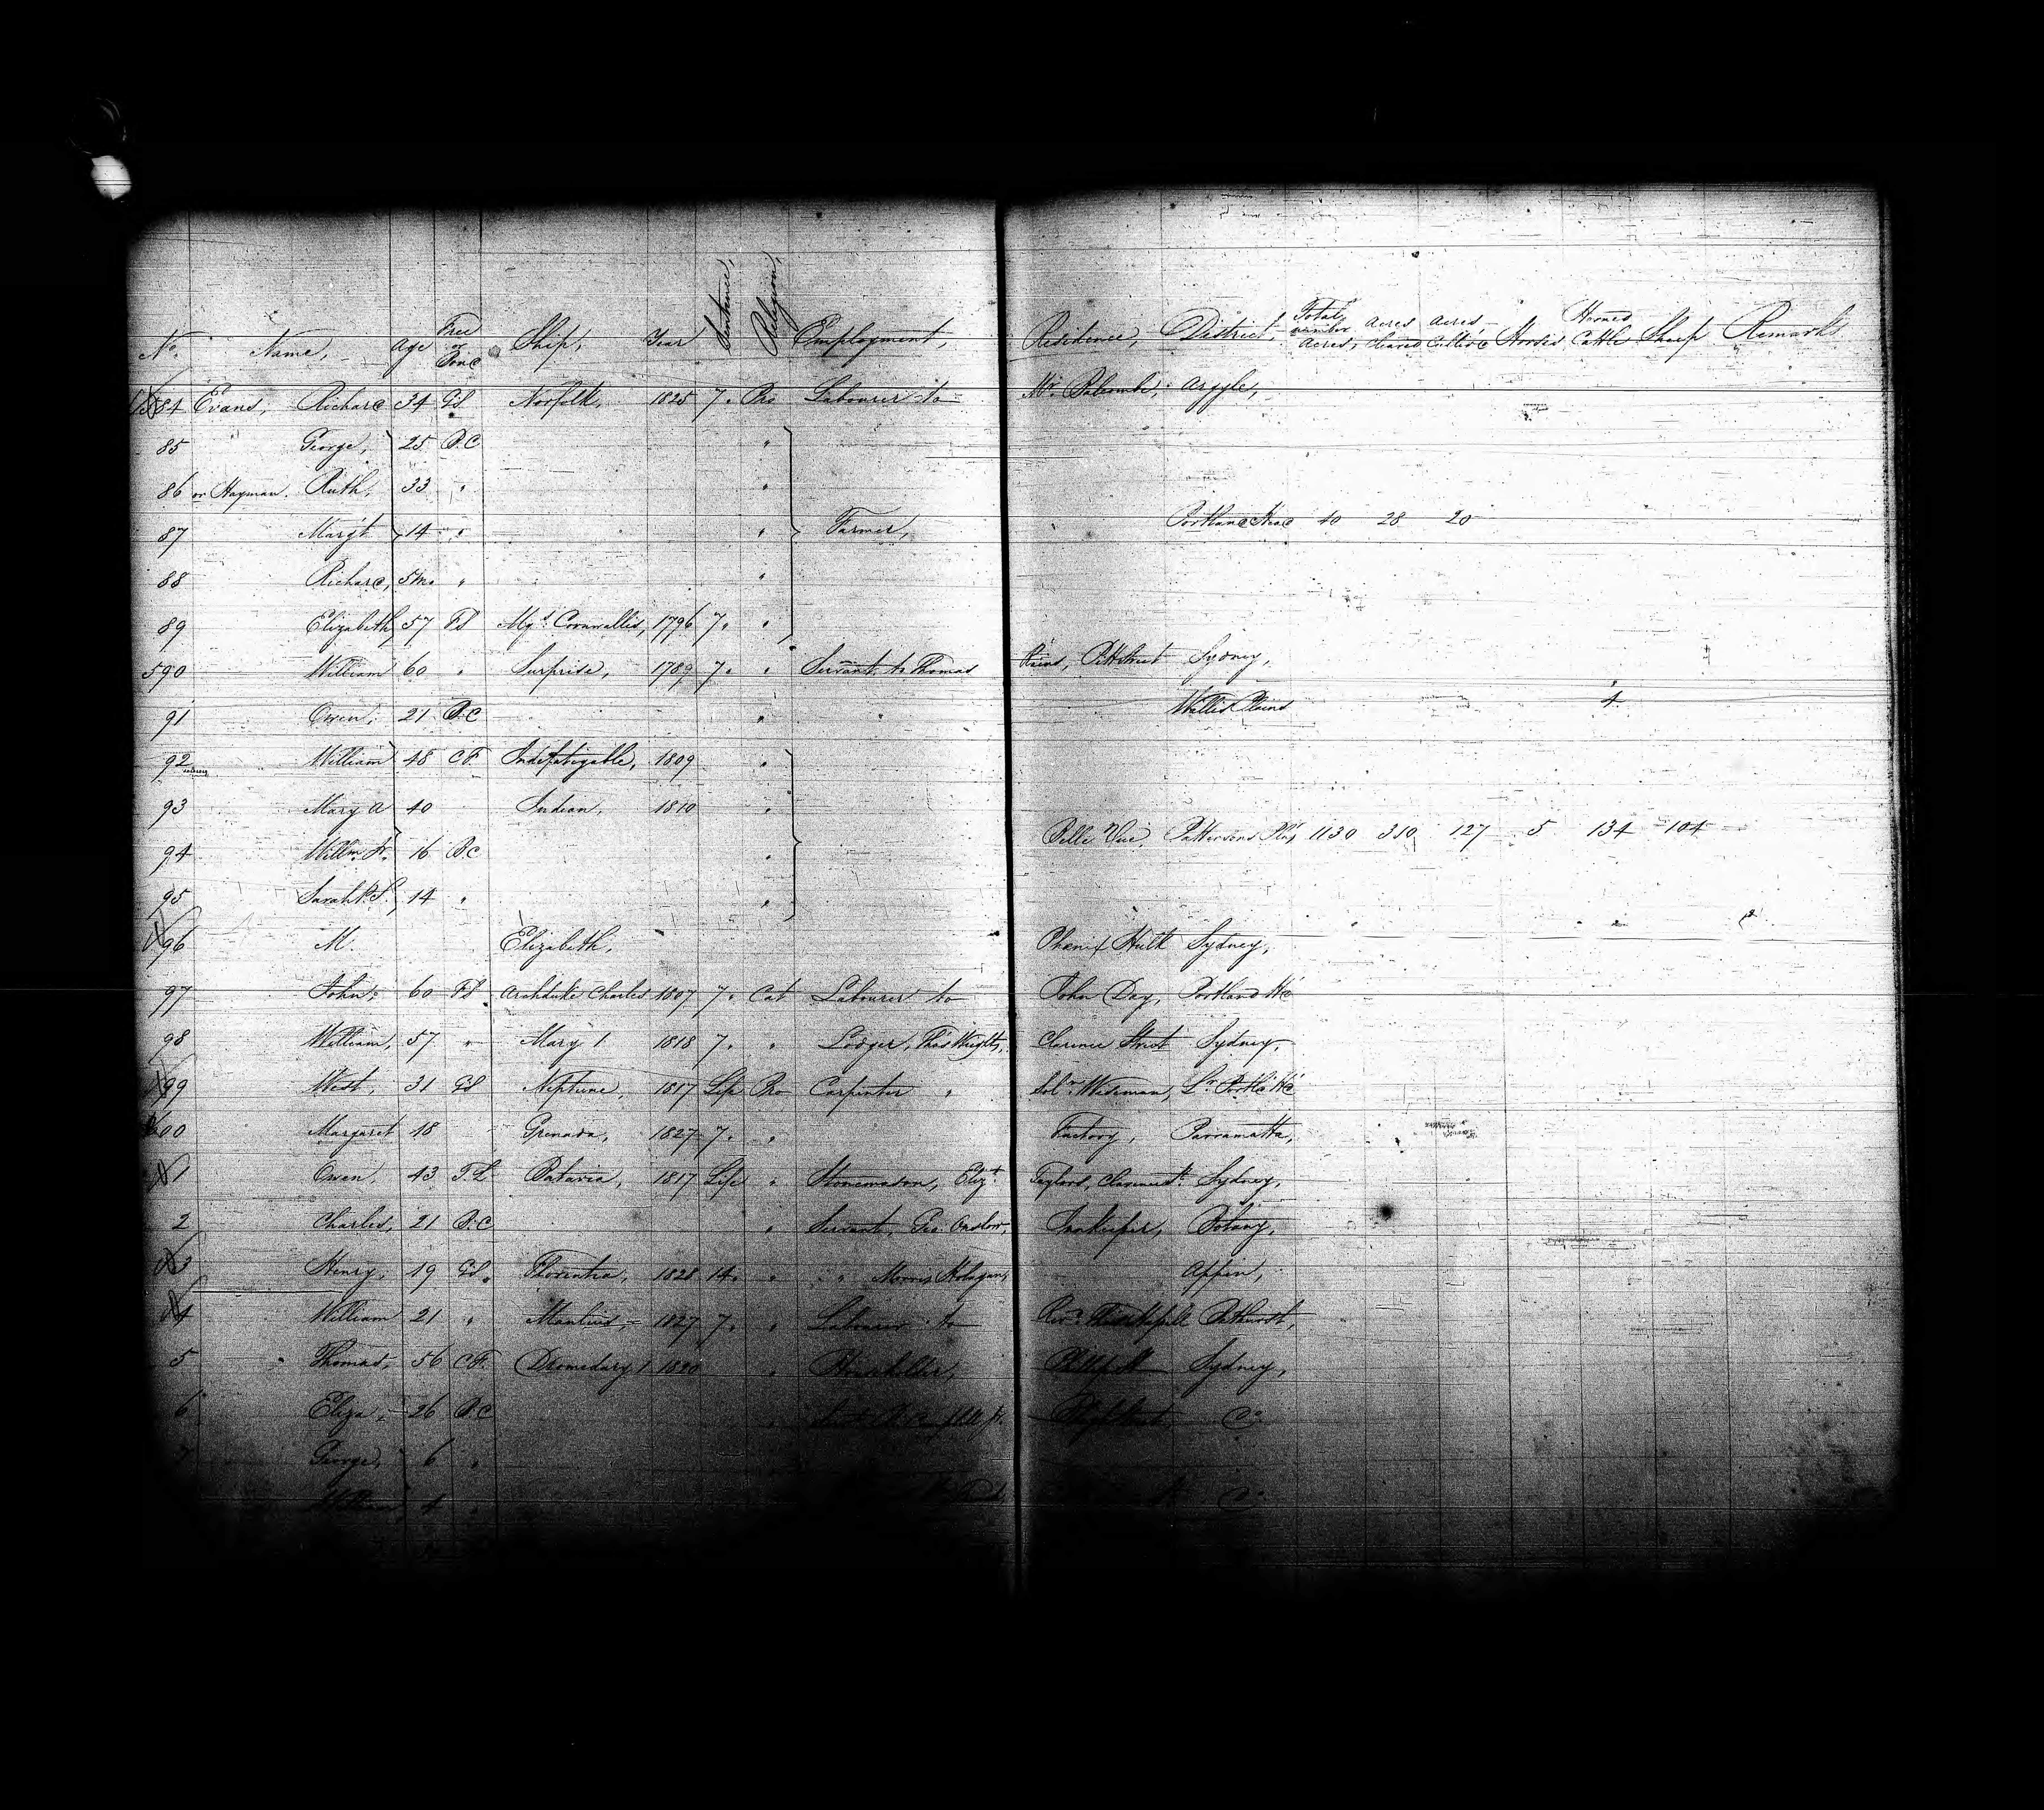 No. Name, Age Free or Bond Ship, Year Sentence, Religion, Employment, Residence, District, Total number Acres, Acres Cleared Acres Cultivd Horses Horned Cattle Sheep Remarks
84 Evans, Richard 34 GS Norfolk, 1825 7. Pro Labourer to Mr. Balcombe, Argyle,
85 George, 25 B.C "
86 or Hayman. Ruth, 33 " "
87 Margt 14 " " Farmer, Portland Head 40 28 20
88 Richard, 5m. " "
89 Elizabeth 57 FS Mqs. Cornwallis, 1796 7. "
590 William 60 " Surprise, 1789 7. " Servant to Thomas Pitt Street Sydney,
91 Owen, 21 B.C " Wallis Plains 4
92 William 48 C.F Indefatigable, 1809 "
93 Mary A 40 Indian, 1810 "
94 Willm. Jr. 16 B.C " Belle Vue, Pattersons Plns 1130 310 127 5 134 104
95 Sarah P.S. 14 " "
96 M. Elizabeth, Phœnix Hulk Sydney,
97 John, 60 FS Archduke Charles 1807 7. Cat Labourer to John Day, Portland Hd
98 William, 57 " Mary 1 1818 7. " Lodger, Thos Wrights, Clarence Street Sydney,
99 West, 31 GS Neptune, 1817 Life Pro Carpenter " Soln. Wiseman, Lr. Portld Hd
600 Margaret 48 Grenada, 1827 7. " Factory, Parramatta,
1 Owen, 43 T.L Batavia, 1817 Life " Stonemason, Elizt. Taylors, Clarence St. Sydney,
2 Charles, 21 B.C " Servant, Geo. Onslow, Innkeeper, Botany,
3 Henry, 19 GS. Florentia, 1828 14. " " Morris Appin,
4 William 21 " Manlius, 1827 7. " Labourer to Revd. Bathurst,
5 Thomas, 56 C.F. Dromedary 1 1820 " Householder, Sydney,
6 Eliza, 26 B.C Do
7 George, 6 "
William, 4 " Do